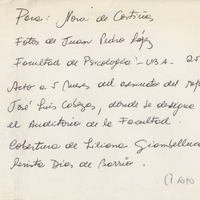 Para: Nora de Cortiñas
Fotos de Juan Pedro López
Facultad de Psicología - U.B.A. 25
Acto a 5 meses del asesinato del rep
José Luis Cabezas, donde se designa
el Auditorio de la Facultad.
Cobertura de Liliana Giambelluca
lenista Dias de barrio.